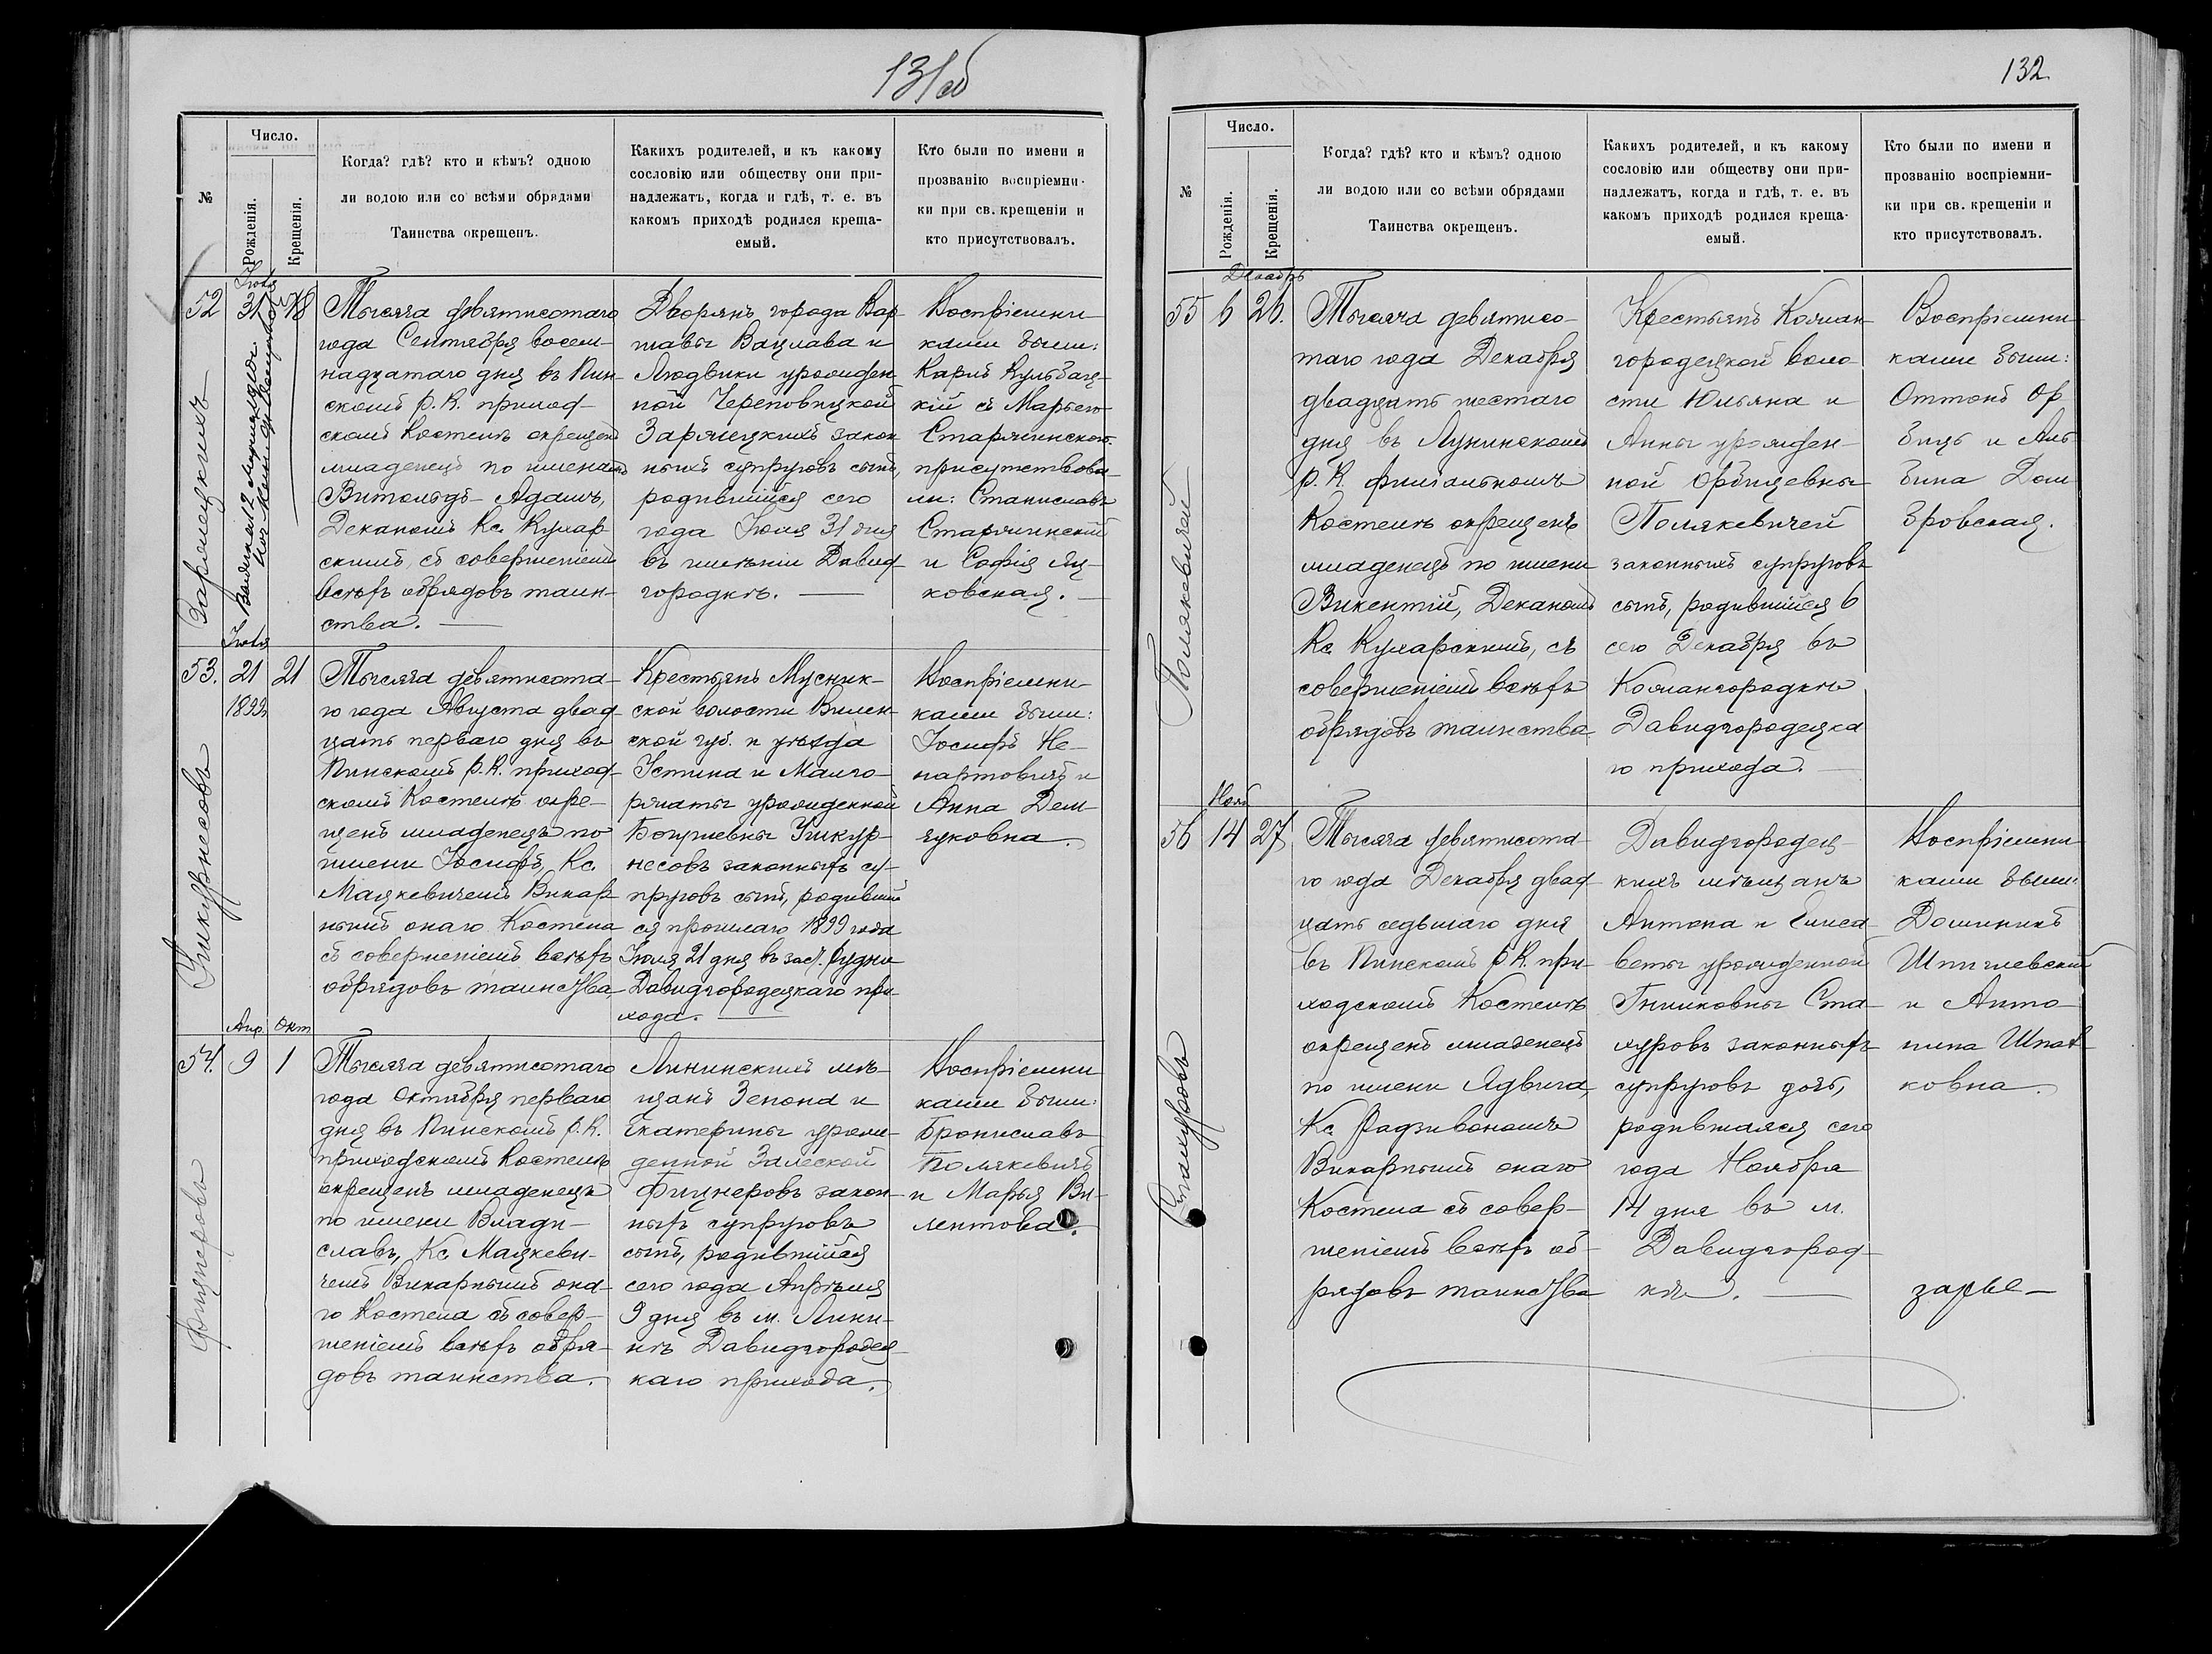 131об
№
Число.
Рожденія.
Крещенія.
Когда? гдѣ? кто и кѣмъ? одною
ли водою или со всѣми обрядами
Таинства окрещенъ.
Какихъ родителей, и къ какому
сословію или обществу они при-
надлежатъ, когда и гдѣ, т. е. въ
какомъ приходѣ родился креща-
емый.
Кто были по имени и
прозванію воспріемни-
ки при св. крещеніи и
кто присутствовалъ.
Іюля
52
31
18
Тысяча девятисотаго
года Сентября восем-
надцатаго дня въ Пин-
скомъ Р. К. приход-
скомъ Костелѣ окрещенъ
младенецъ по именамъ
Витольдъ-Адамъ,
Деканомъ Кс. Кухар-
скимъ, съ совершеніемъ
всѣхъ обрядовъ таин-
ства.
Дворянъ города Вар-
шавы Вацлава и
Людвики урожден-
ной Череповицкой
Зарѣмецкихъ закон
ныхъ супруговъ сынъ,
родившійся сего
года Іюля 31 дня
въ имѣніи Давид-
городкѣ.
Воспріемни-
ками были:
Карлъ Кульбац-
кій съ Марьею
Старжинскою.
присутствова-
ли: Станиславъ
Старжинскій
и Софія
ковская.
Іюля
53.
21
21
1899
Ушкурнесовъ
Тысяча девятисота-
го года Августа двад-
цать перваго дня въ
Пинскомъ Р. К. приход-
скомъ Костелѣ окре-
щенъ младенецъ по
имени Іосифъ, Кс.
Мацкевичемъ Викар-
нымъ онаго Костела
съ совершеніемъ всѣхъ
обрядовъ таинства
Крестьянъ Мусник-
ской волости Вилен-
ской губ. и уѣзда
Устина и Малго-
ржаты урожденной
Богушевны Ушкур-
несовъ законныхъ су-
пруговъ сынъ, родивший
ся прошлаго 1899 года
Іюля 21 дня въ заст. Рудни
Давидгородецкаго при-
хода.
Воспріемни-
ками были:
Іосифъ Не-
нартовичъ и
Анна Дем-
чуковна.
Апр.
Окт
54.
9
1
Фицнеровъ
Тысяча девятисотаго
года Октября перваго
дня въ Пинскомъ Р. К.
приходскомъ Костелѣ
окрещенъ младенецъ
по имени Влади-
славъ, Кс. Мацкеви-
чемъ Викарнымъ она-
го Костела съ совер-
шеніемъ всѣхъ обря-
довъ таинства.
Лининскихъ мѣ-
щанъ Зенона и
Екатерины урож-
денной Залеской
Фицнеровъ закон-
ныхъ супруговъ
сынъ, родившійся
сего года Апрѣля
9 дня въ м. Лини-
нѣ Давидгородец-
каго прихода.
Воспріемни
ками были:
Брониславъ
Полякевичъ
и Марья Ви-
лентова.
132
№
Число.
Рожденія.
Крещенія.
Когда? гдѣ? кто и кѣмъ? одною
ли водою или со всѣми обрядами
Таинства окрещенъ.
Какихъ родителей, и къ какому
сословію или обществу они при-
надлежатъ, когда и гдѣ, т. е. въ
какомъ приходѣ родился креща-
емый.
Кто были по имени и
прозванію воспріемни-
ки при св. крещеніи и
кто присутствовалъ.
Декабрь
55
6
26.
Полякевичей
Тысяча девятисо-
таго года Декабря
двадцать шестаго
дня въ Лунинскомъ
Р. К. филіальномъ
Костелѣ окрещенъ
младенецъ по имени
Викентій, Деканомъ
Кс. Кухарскимъ, съ
совершеніемъ всѣхъ
обрядовъ таинства
Крестьянъ Кожан
городецкой воло
сти Юльяна и
Анны урожден-
ной Орбицевны
Полякевичей
законныхъ супруговъ
сынъ, родившійся 6
сего Декабря въ
Кожангородкѣ
Давидгородецка
го прихода.
Воспріемни-
ками были:
Оттонъ Ор
бицъ и Аль
бина Дом
бровская.
Нояб
56
14
27
Стахуровъ
Тысяча девятисота-
го года Декабря двад-
цать седьмаго дня
въ Пинскомъ Р. К. при-
ходскомъ Костелѣ
окрещенъ младенецъ
по имени Ядвига,
Кс. Радзивономъ
Викарнымъ онаго
Костела съ совер-
шеніемъ всѣхъ об-
рядовъ таинства
Давидгородец-
кихъ мѣщанъ
Антона и Елиса
веты урожденной
Гништовны Ста-
хуровъ законныхъ
супруговъ дочь,
родившаяся сего
года Ноября
14 дня въ м.
Давидгород-
кѣ.
Воспріемни
ками были:
Доминикъ
Шпичевскій
и Анто-
нина Шпа
ковна.